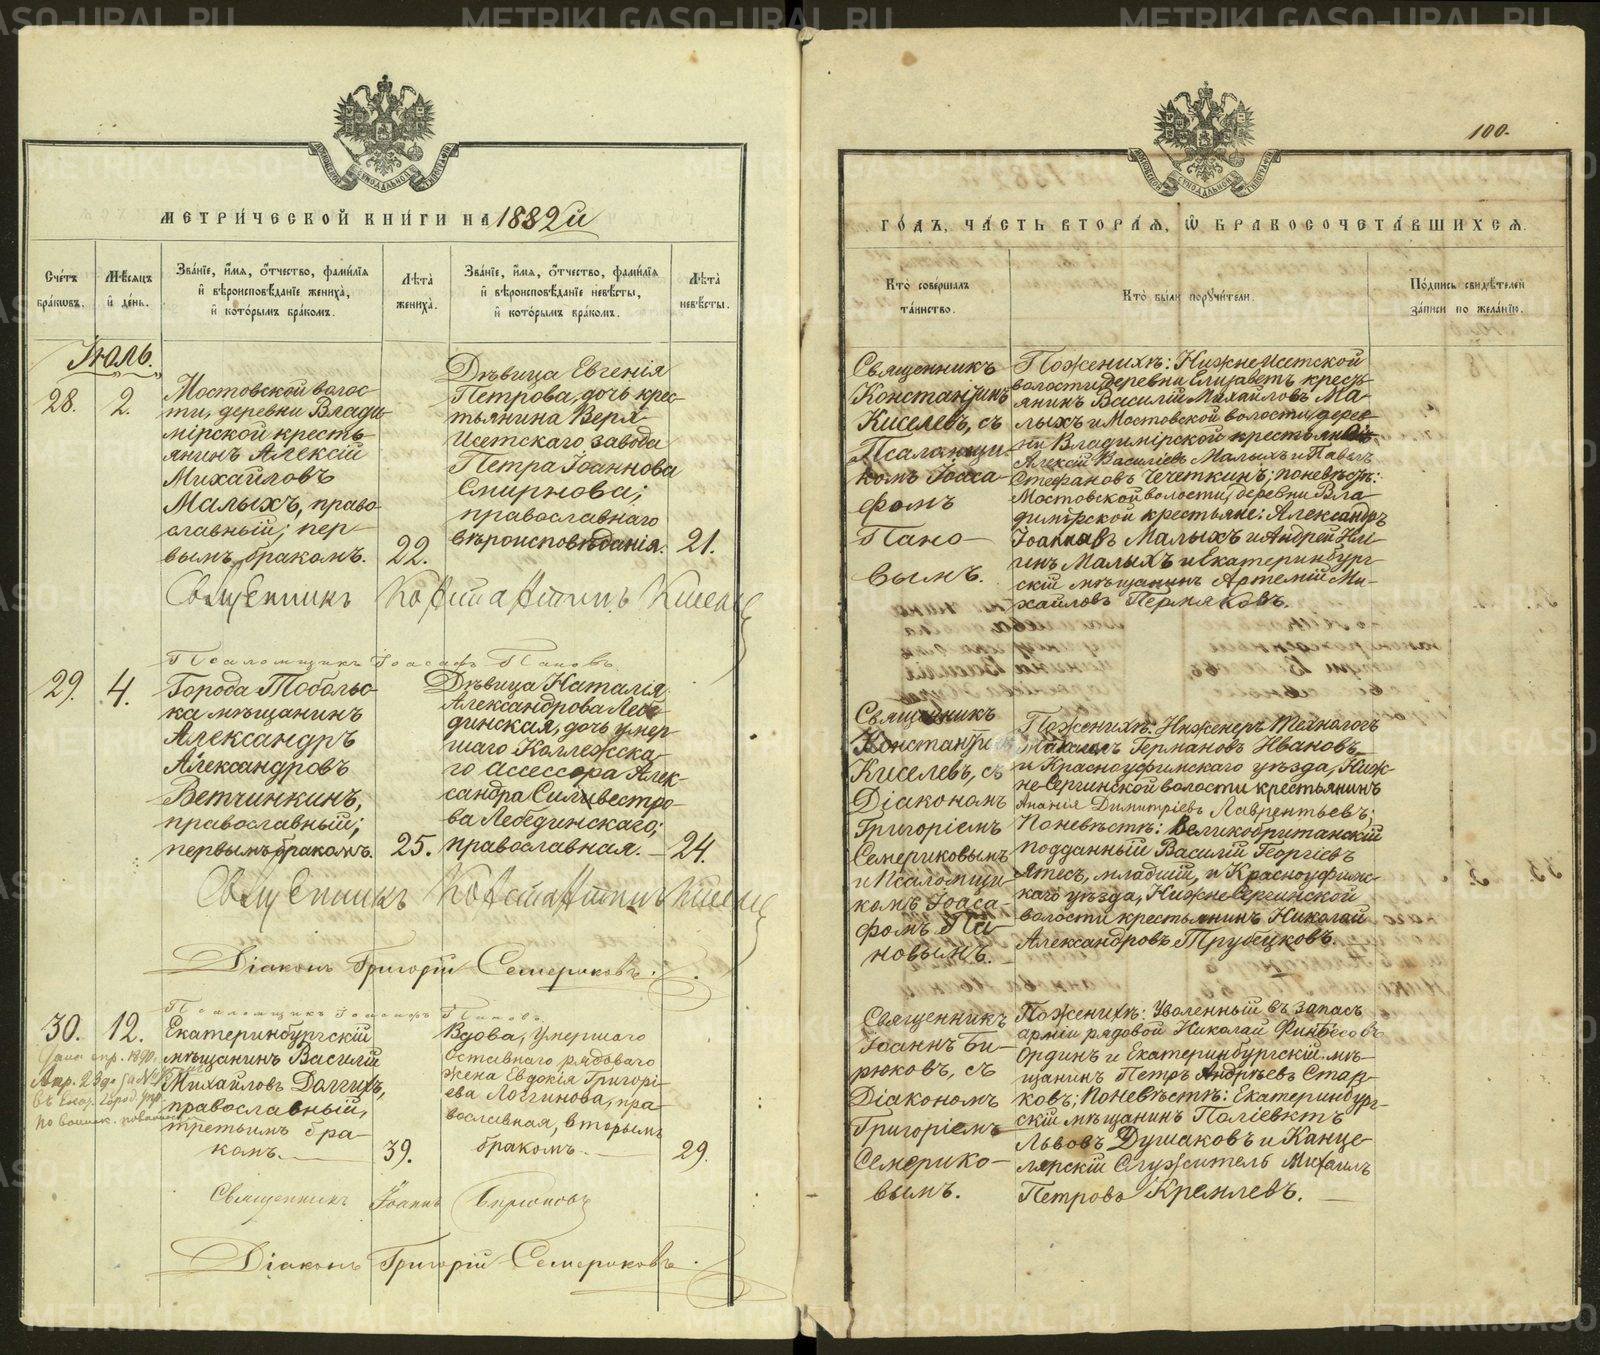 METRIKI.GASO-URAL.RU
МЕТРИ́ЧЕСКОЙ КНИ́ГИ НА 1882й
Сче́тъ бра́ковъ.
Мѣ́сяцъ и де́нь.
Зва́нїе, и҆́мя, ѻ҆́тчество, фами́лїя
и҆ вѣроисповѣ́данїе жениха̀,
и҆ кото́рымъ бра́комъ.
Лѣ́та жениха̀.
Зва́нїе, и҆́мя, ѻ҆́тчество, фами́лїя
и҆ вѣроисповѣ́данїе невѣ́сты,
и҆ кото́рымъ бра́комъ.
Лѣ́та невѣ́сты.
Іюль.
28.
2.
Мостовской волос-
ти, деревни Влади-
мірской кресть-
янинъ Алексій
Михайловъ
Малыхъ, право-
славный; пер-
вымъ бракомъ.
22.
Дѣвица Евгенія
Петрова, дочь крес-
тьянина Верх-
Исетскаго завода
Петра Іоаннова
Смирнова;
православнаго
вѣроисповѣданія.
21.
Священникъ Константинъ Киселевъ
Псаломщикъ Іоасафъ Пановъ.
29.
4.
Города Тобольс-
ка мѣщанинъ
Александръ
Александровъ
Ветчинкинъ,
православный;
первымъ бракомъ.
25.
Дѣвица Наталія
Александрова Лебе-
динская, дочь умер-
шаго Коллежска-
го ассессора Алек-
сандра Силивестро-
ва Лебединскаго;
православная.
24.
Священникъ Константинъ Киселевъ
Діаконъ Григорій Семериковъ.
Псаломщикъ Іоасафъ Пановъ.
30.
12.
Екатеринбургскій
мѣщанинъ Василій
Михайловъ Долгихъ,
православный,
третьимъ бра-
комъ.
39.
Вдова, умершаго
отставнаго рядоваго
жена Евдокія Григорі-
ева Логгинова, пра-
вославная, вторымъ
бракомъ.
29.
Священникъ Іоаннъ Бирюковъ
Діаконъ Григорій Семериковъ.
100.
ГО́ДЪ, ЧА́СТЬ ВТОРА́Я, Ѡ҆ БРАКОСОЧЕТА́ВШИХСЯ.
Кто̀ соверша́лъ
та́инство.
Кто̀ бы́ли поручи́тели.
По́дпись свидѣ́телей
за́писи по жела́нїю.
Священникъ
Константинъ
Киселевъ, съ
Псаломщи-
комъ Іоаса-
фомъ
Пано-
вымъ.
По женихѣ: Нижне-Исетской
волости, деревни Елизаветъ кресть-
янинъ Василій Михайловъ Ма-
лыхъ и Мостовской волости, дерев-
ни Владимірской крестьянинъ
Алексій Василіевъ Малыхъ и Павелъ
Стефановъ Чечеткинъ; по невѣстѣ:
Мостовской волости, деревни Вла-
димірской крестьяне: Александръ
Іоанновъ Малыхъ и Андрей Ни-
гинъ Малыхъ и Екатеринбург-
скій мѣщанинъ Артемій Ми-
хайловъ Пермяковъ.
Священникъ
Константинъ
Киселевъ, съ
Діакономъ
Григоріемъ
Семериковымъ
и Псаломщи-
комъ Іоаса-
фомъ Па-
новымъ.
По женихѣ: Инженеръ Технологъ
Михаилъ Германовъ Ивановъ
и Красноуфимскаго уѣзда, Ниж-
не-Сергинской волости крестьянинъ
Ананія Димитріевъ Лаврентьевъ;
По невѣстѣ: Великобританскій
подданный Василій Георгіевъ
Ятесъ, младшій, и Красноуфимс-
каго уѣзда, Нижне Сергинской
волости крестьянинъ Николай
Александровъ Трубецковъ.
Священникъ
Іоаннъ Би-
рюковъ, съ
Діакономъ
Григоріемъ
Семерико-
вымъ.
По женихѣ: Уволенный въ запасъ
арміи рядовой Николай
Ординъ и Екатеринбургскій мѣ-
щанинъ Петръ Андреевъ Стар-
ковъ; По невѣстѣ: Екатеринбург-
скій мѣщанинъ Поліевктъ
Львовъ Душаковъ и Канце-
лярскій Служитель Михаилъ
Петровъ Кремлевъ.